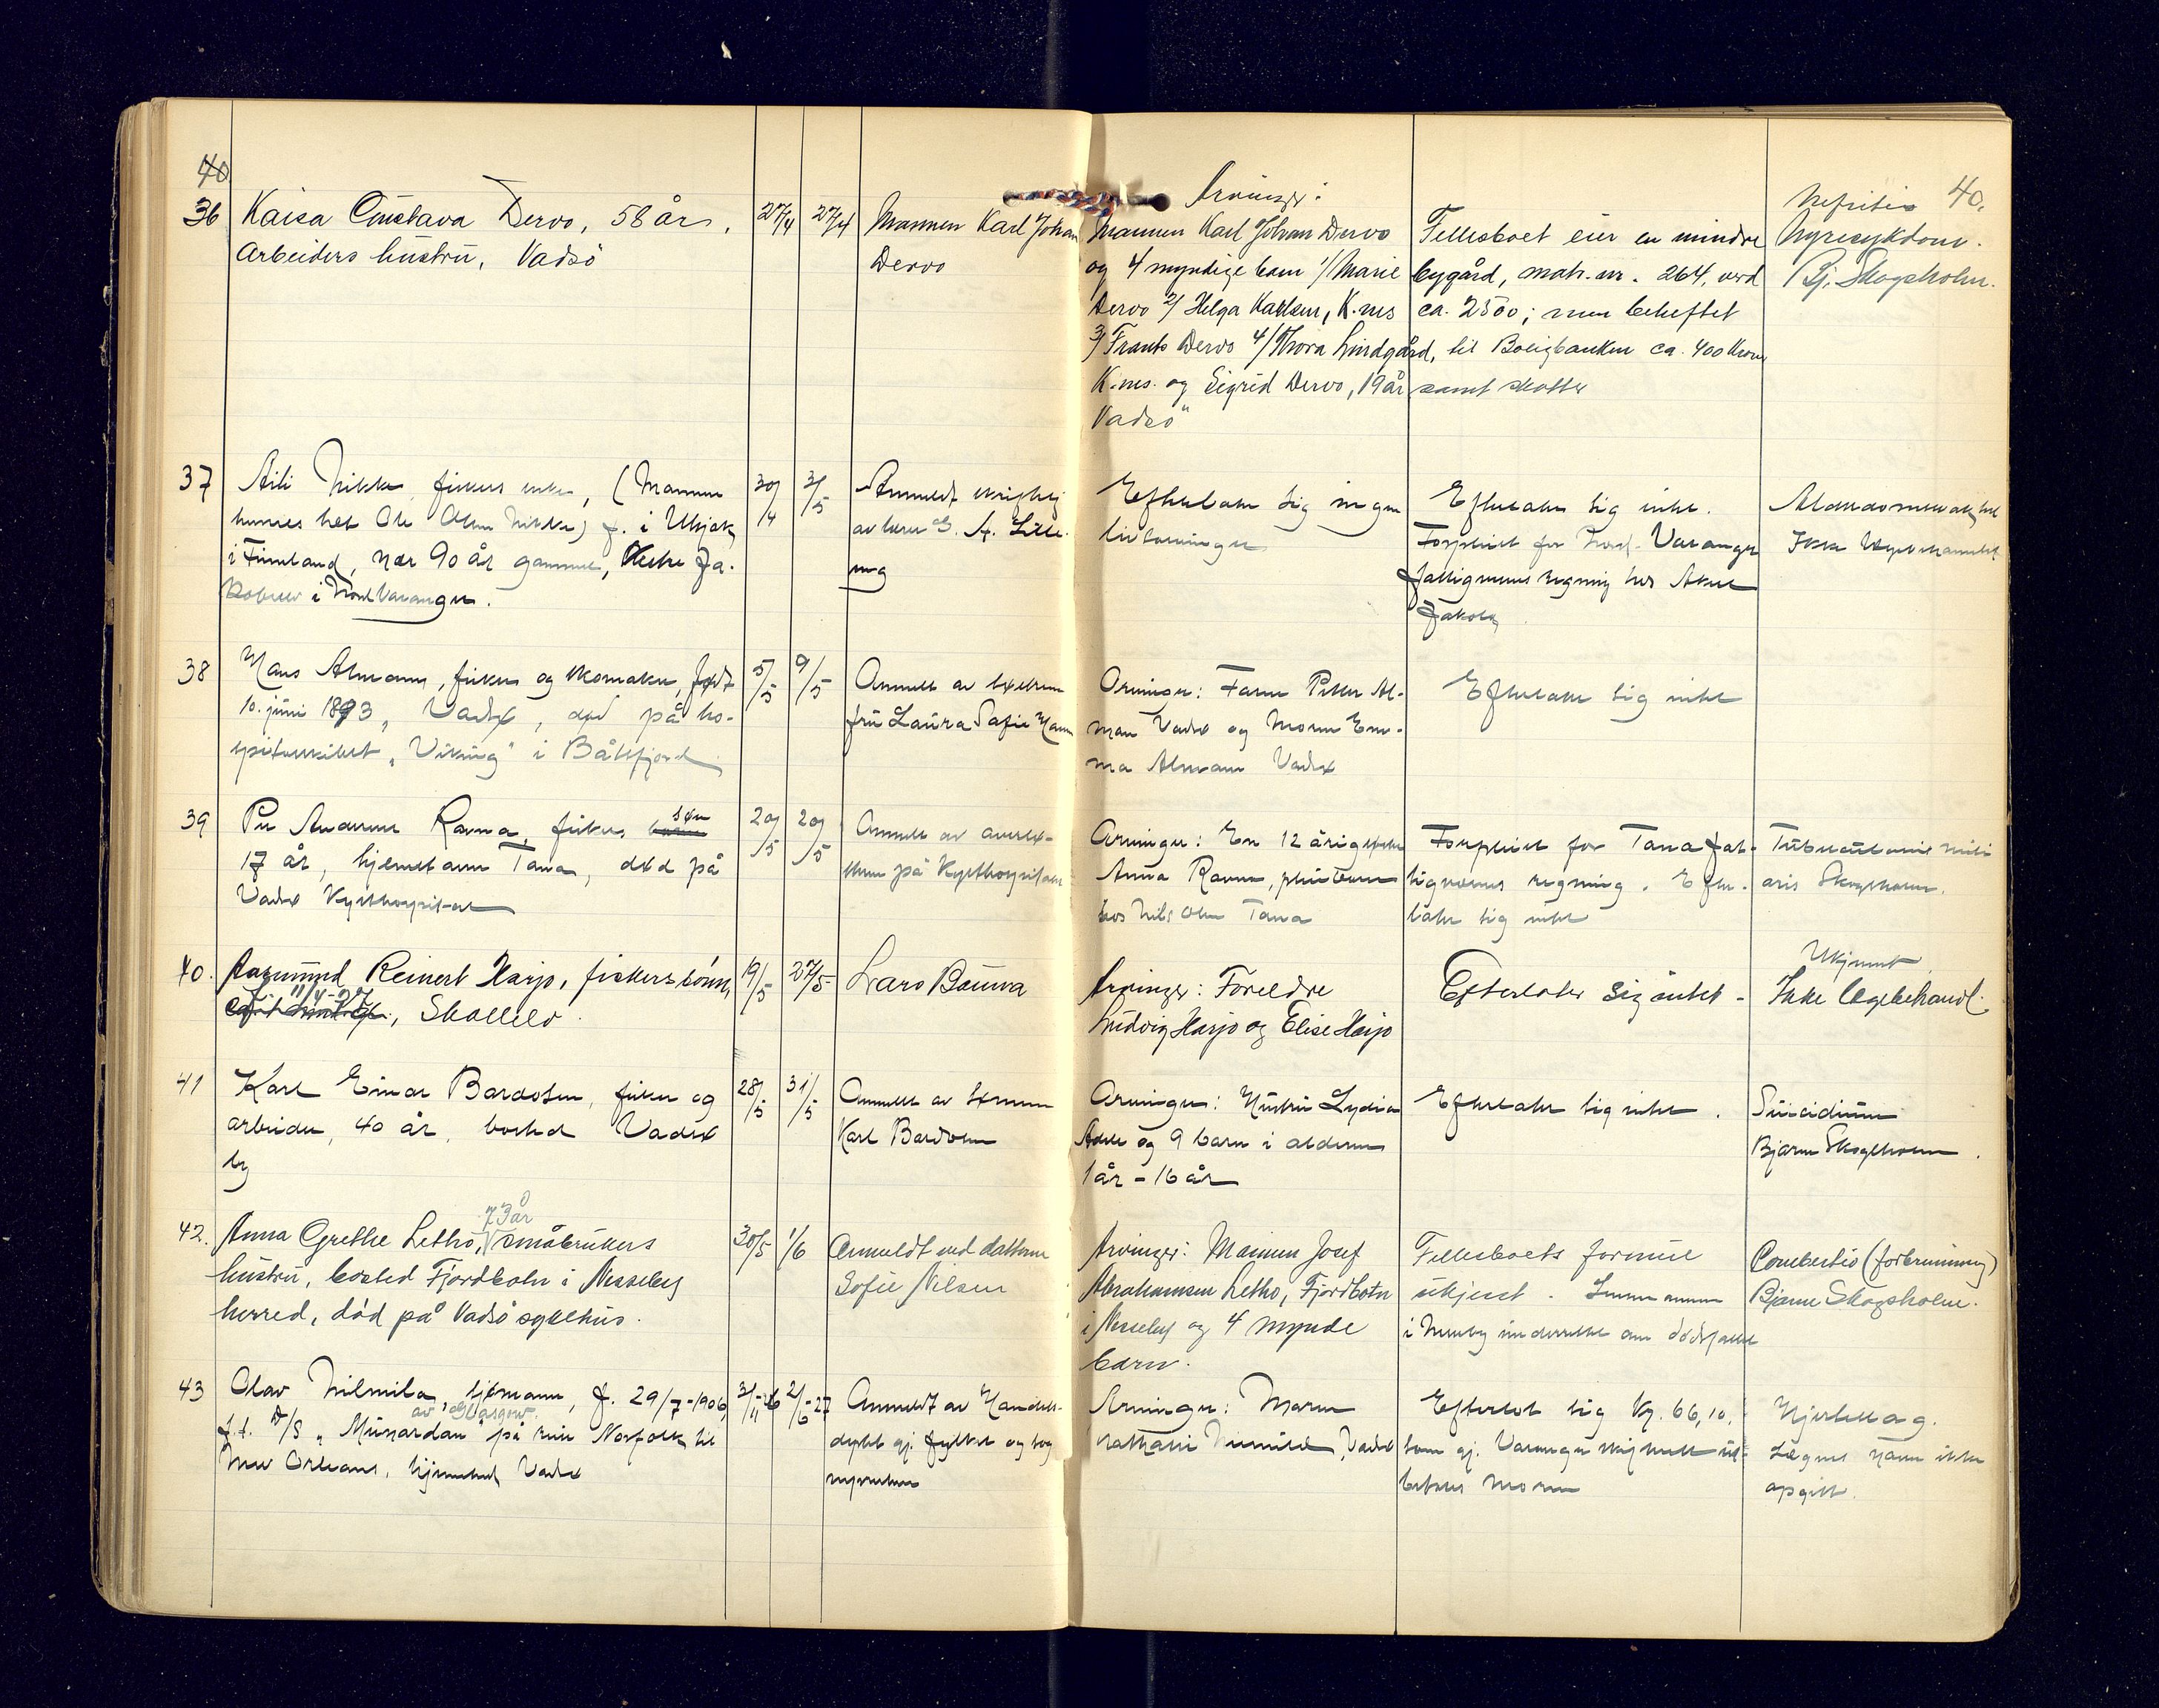 40
40.
36 Kaisa Gustava Dervo, 58 år,
arbeiders hustru, Vadsö
27/4 27/4
Mannen Karl Johan
Dervo
Arvinger:
Mannen Karl Johan Dervo
og 4 myndige barn 1/ Marie
Dervo 2/ Helga Karlsen, K.nes
3/ Frants Dervo 4/ Thora Lindgård,
K.nes. og Sigrid Dervo, 19 år
Vadsö"
Fellesboet eier en mindre
bygård, matr. nr. 264, verd
ca. 2500; men beheftet
til Boligbanken ca. 400 kroner
samt skatter
Nefritis
Nyresykdom.
Bj. Skogsholm.
37 Aili Nikke, fiskers enke, (Mannen
hennes het Ole Olsen Nikke) f. i Utsjok
i Finnland, nær 90 år gammel,
i Nord Varanger.
30/4 3/5
Anmeldt skriftlig
av lærer A. Lille-
eng
Efterlater sig ingen
livsarvinger
Efterlater sig intet.
Forpleiet for Nord-Varanger
fattigvesens regning hos Aksel
Jakola
Ikke lægebehandlet
38 Hans Alman, fisker og skomaker, født
10. juni 1893, Vadsø, død på ho-
spitalskibet "Viking" i Båtsfjord
5/5 9/5
Anmeldt av søsteren
fru Laura Sofie
Arvinger: Faren Petter Al-
man Vadsø og Moren Em-
ma Alman Vadsø
Efterlater sig intet
39 Per Andersen Ravna, fiskers søn
17 år, hjemsted Tana, død på
Vadsø Kysthospital
20/5 20/5
Anmeldt av oversø-
steren på Kysthospitalet
Arvinger: En 12 årig søster
Anna Ravna, pleiebarn
hos Nils Olsen Tana
Forpleiet for Tana fat-
tigvesens regning. Efter-
later sig intet
Tuberculosis mili
aris Skogsholm.
40. Aagmund Reinert Harjo, fiskerssönn,
11/4-27, Skallelv.
19/5 27/5
Lars Bauna
Arvinger: Foreldre
Ludvig Harjo og Elise Harjo
Efterlater sig intet -
Ukjent
Ikke lægebehandl.
41 Karl Einar Bardosen, fisker og
arbeider, 40 år, bosted Vadsø
by
28/5 31/5
Anmeldt av sønnen
Karl Bardosen
Arvinger: Hustru Lydia
Adele og 9 barn i alderen
1 år - 16 år
Efterlater sig intet.
Suicidium
Bjarne Skogsholm.
42. Anna Grethe Letho, 73 år småbrukers
hustru, bosted Fjordbotn i Nesseby
herred, död på Vadsö sykehus.
30/5 1/6
Anmeldt ved datteren
Sofie Nilsen
Arvinger: Mannen Josef
Abrahamsen Letho, Fjordbotn
i Nesseby og 4 mynde
barn.
Fellesboets formue
ukjent. Lensmannen
i Nesseby underrettet om dödsfallet
Combustio (forbrenning)
Bjarne Skogsholm.
43 Olav Nilmila, sjømann, f. 29/7-1906,
f.f. D/S "Munardan" av Glasgow på reise Norfolk til
New Orleans, hjemsted Vadsø
3/11-26 2/6-27
Anmeldt av Handels-
dept gj. fylket og sog
nepresten
Arvinger: Moren
Vadsø
Efterlot sig Kr. 66,10,
som gj. Varanger skifterett ut-
betales moren
Hjerteslag.
Lægens navn ikke
opgitt.